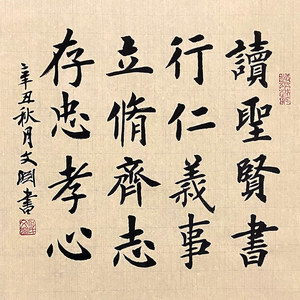 讀聖賢書
行仁義事
立脩齊志
存忠孝心
辛丑秋月文國書